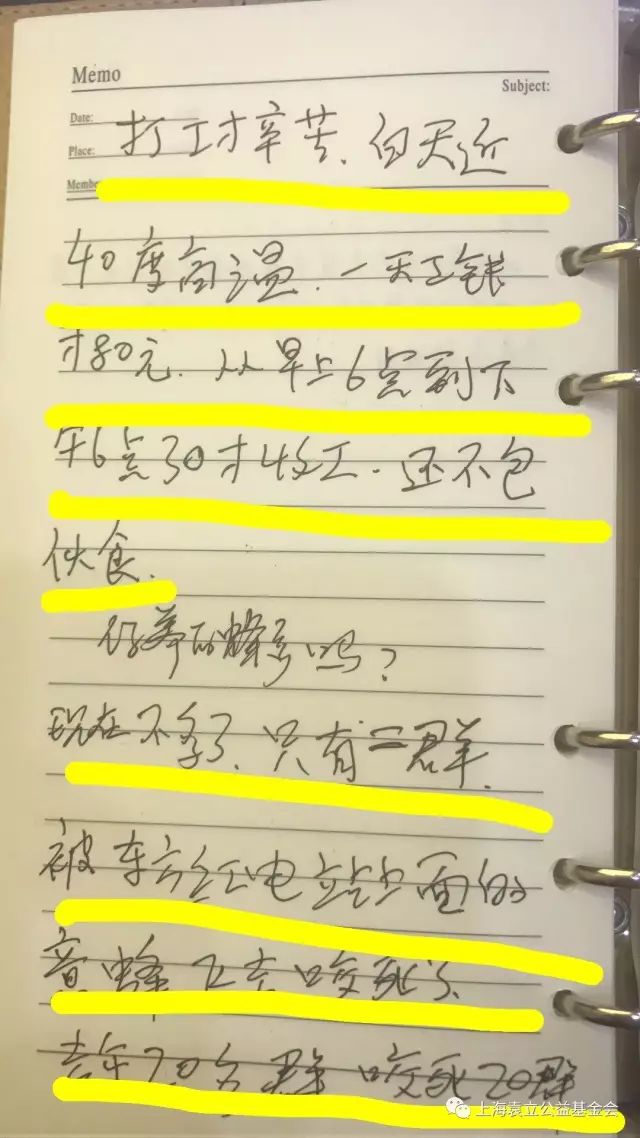 Memo
Subject:
Date:
Place:
Membe
打工才辛苦、白天近
40度高温、一天工钱
才80元、从早上6点到下
午6点30才收工.还不包
伙食、
你养的蜂多吗?
现在不多了、只有二群、
被东方红电站上面的
蜂飞去咬死了、
去年20多群咬死20群
上海袁立公益基金会